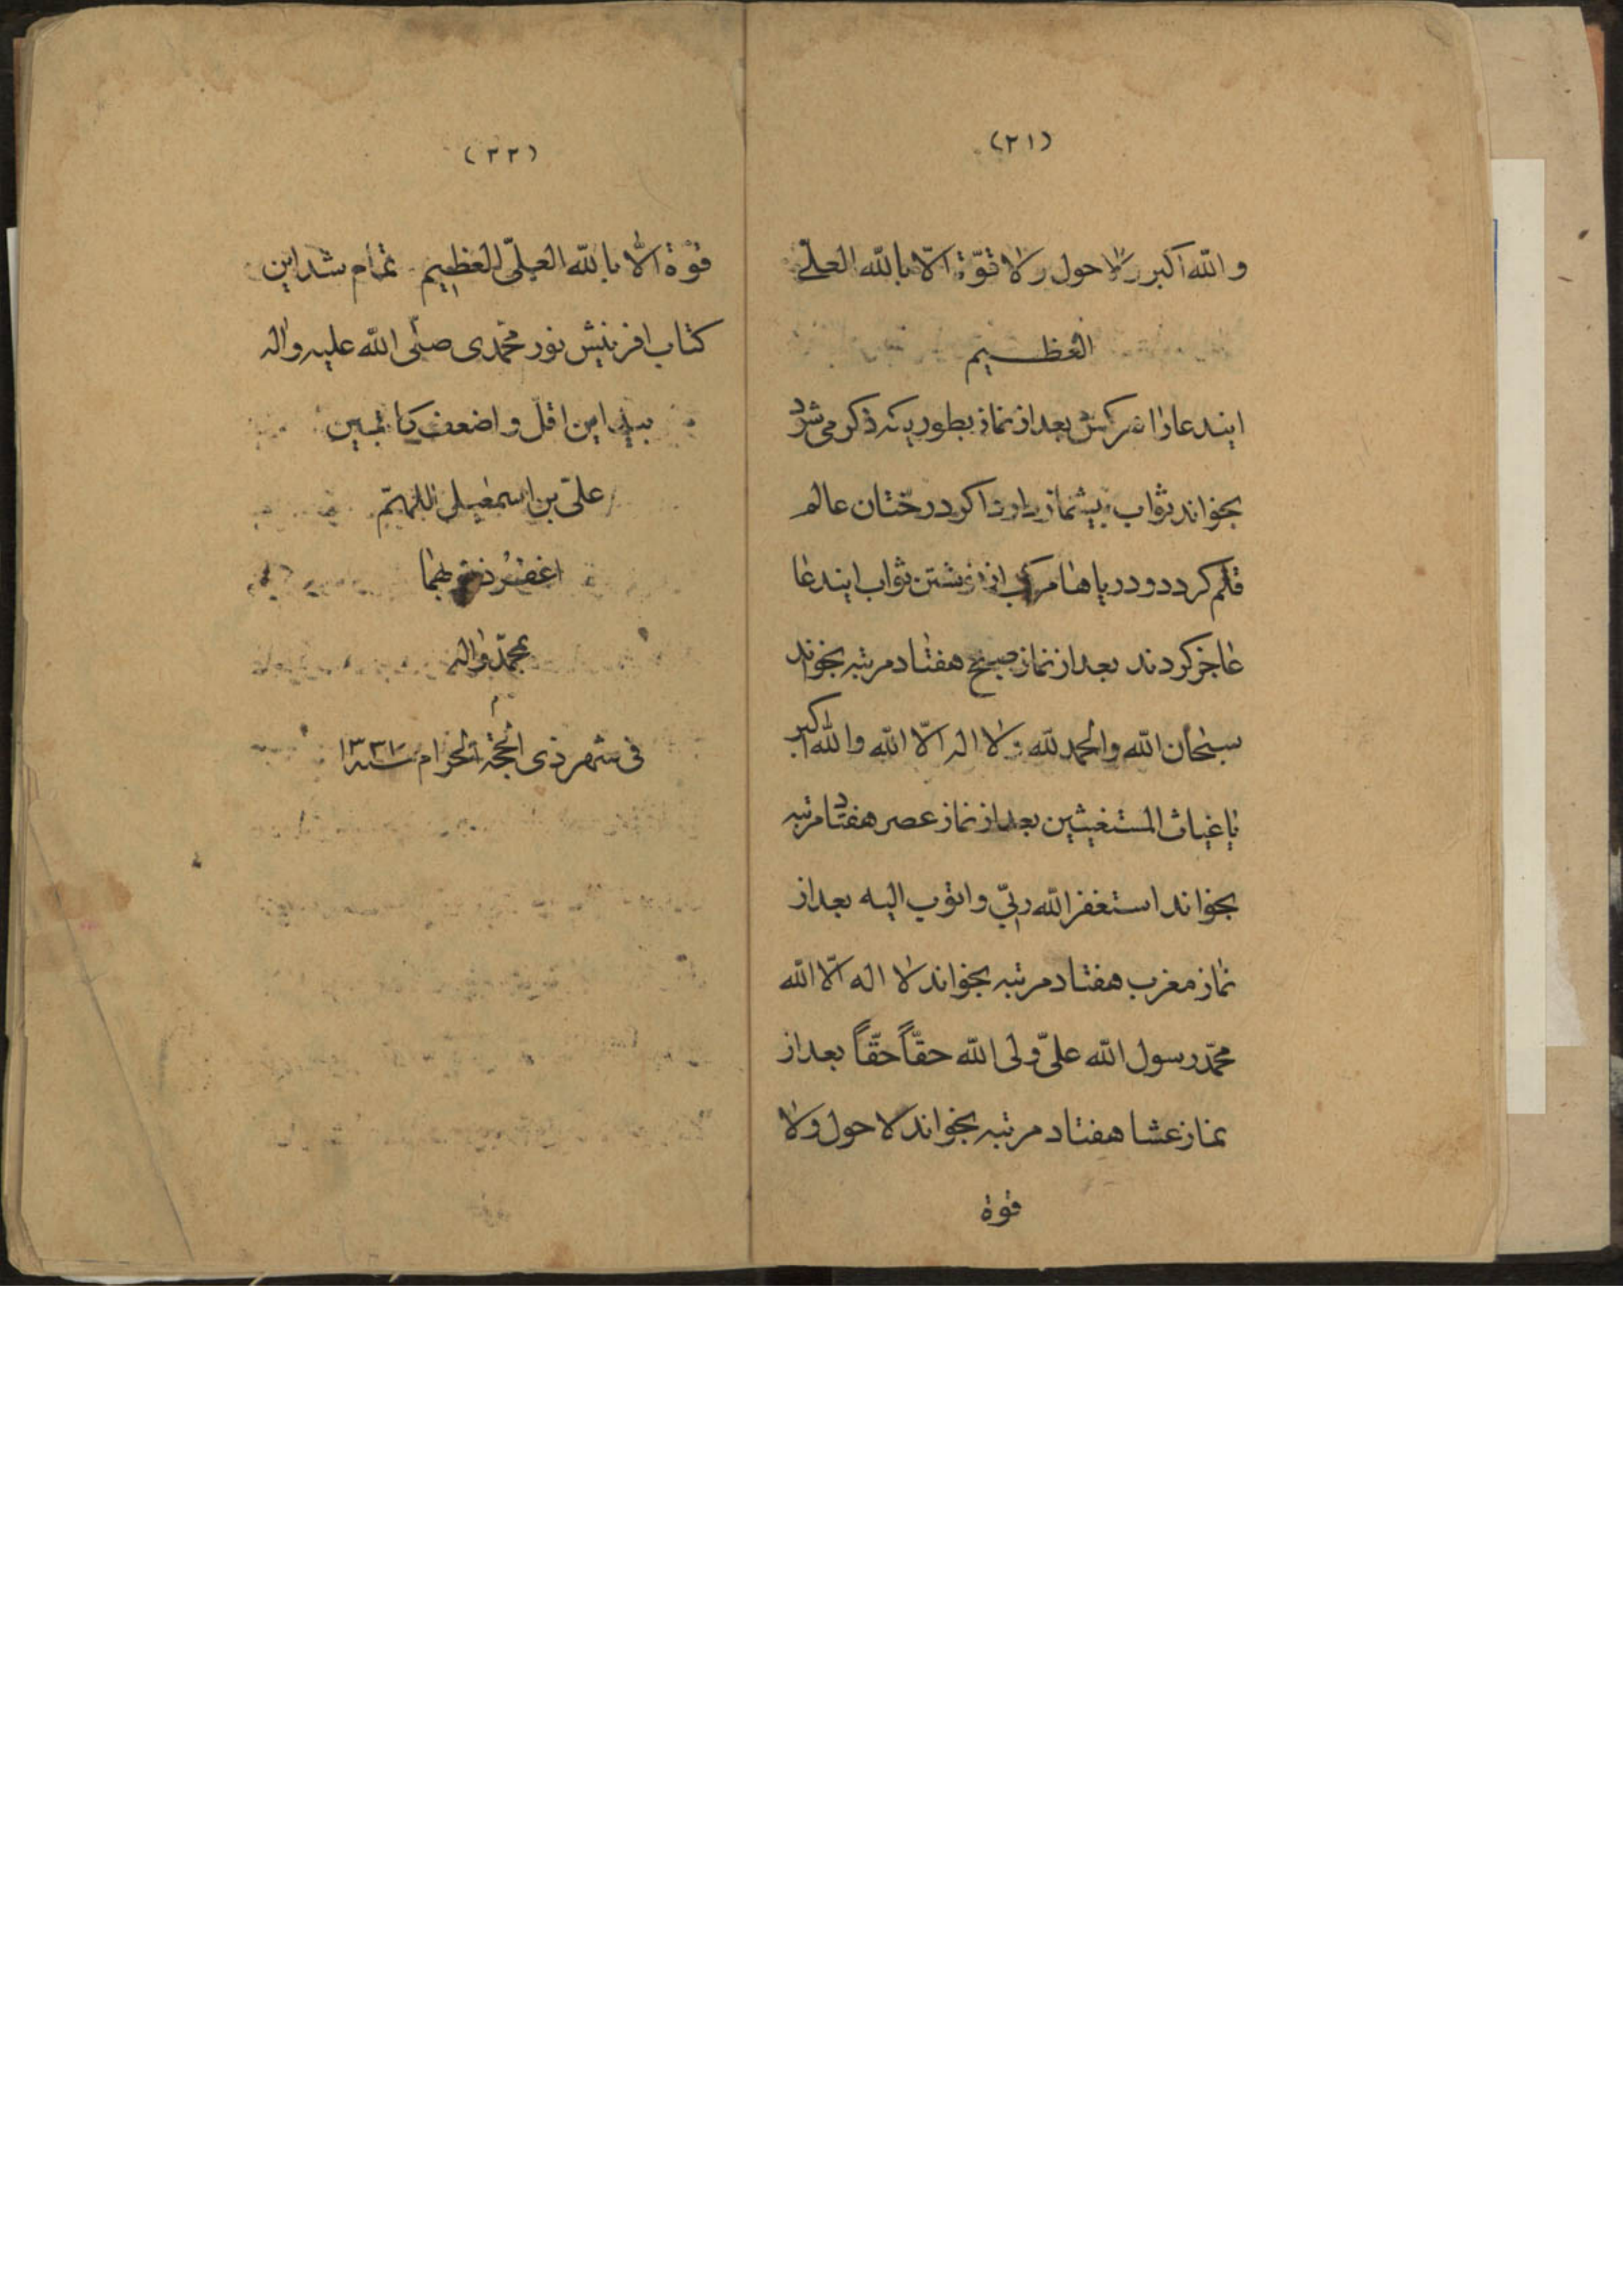 (۲۱)
و الله اکبر ولا حول ولا قوّة الّا بالله العلی
العظیم
ایندعا را هر کس بعد از نماز بطوریکه ذکر می شود
بخواند ثواب بیشمار دارد اکر درختان عالم
قلم کردد و دریاها مرکب از نوشتن ثواب ایندعا
عاجز کردند بعد از نماز صبح هفتاد مرتبه بخواند
سبحان الله والحمد لله ولا اله الّا الله والله اکبر
یا غیاث المستغیثین بعد از نماز عصر هفتاد مرتبه
بخواند استغفر الله ربّی و اتوب الیه بعد از
نماز مغرب هفتاد مرتبه بخواند لا اله الّا الله
محمّد رسول الله علیّ ولی الله حقّاً حقّاً بعد از
نماز عشا هفتاد مرتبه بخواند لا حول ولا
قوة
(۲۲)
قوّة الّا بالله العلیّ العظیم تمام شد این
کتاب افرینش نور محمّدی صلّی الله علیه واله
بید این اقلّ و اضعف کاتبین
علیّ بن اسمعیل اللهمّ
اغفر ذنوبهما
بمحمّد واله
فی شهر ذی الحجة الحرام سنه ۱۳۳۷